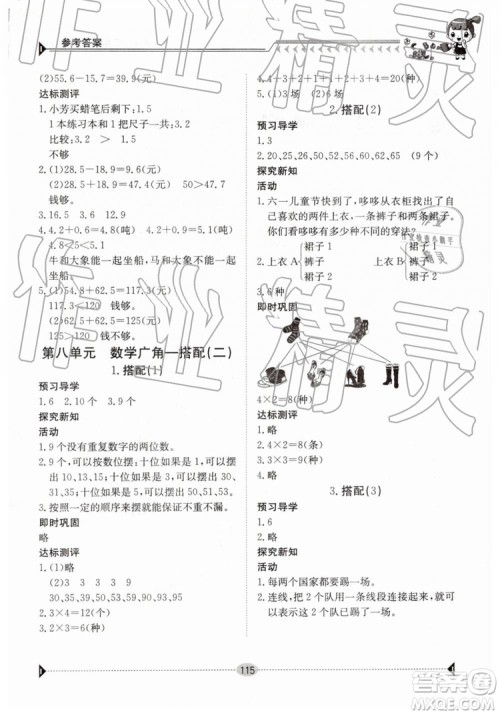 参考答案
(2)55.6-15.7=39.9(元)
达标测评
1.小芳买蜡笔后剩下:1.5
1本练习本和1把尺子共:3.2
比较:3.2 > 1.5
不够
2.(1)28.5-18.9=9.6(元)
(2)28.5+18.9=47.4(元) 50>47.4
钱够。
3.16.5 13.5 4.6 2.9
4.4.2+0.6=4.8(吨) 4.8<5
4.2+0.9=5.1(吨) 5.1>5
牛和大象能一起坐船,马和大象不能一起坐船。
5.(1)62.5+54.8=117.3(元)
117.3<120 钱够。
(2)62.5+62.5=125(元)
125>120 钱不够。
第八单元 数学广角—搭配(二)
1.搭配(1)
预习导学
1.6 2.10个 3.9个
探究新知
活动
1.9个没有重复数字的两位数。
3.按照一定的顺序来摆可以做到。
即时巩固
略
达标测评
1.(1)略
2.3×4=12(种)
3.2×3=6(种)
4.4+3+2+1=10(种)
5.(1)3场 (2)6场
2.搭配(2)
预习导学
1.3
2.20,25,26,50,52,56,60,62,65 (9个)
探究新知
活动
1.六一儿童节快到了,哆哆从衣柜找出了自己喜欢的两件上衣,一条裤子和两条裙子。你们看哆哆有多少种不同的穿法?
裙子1 裙子1
2.上衣A 裤子 上衣B 裤子
裙子2 裙子2
3.6(种)
即时巩固
达标测评
1.略
2.4×2=8(条)
3.4×2=8(种)
4.略
3.搭配(3)
预习导学
1.6
2.略
探究新知
活动
1.每两个国家都要踢一场。
2.每2个队踢一场用线段连接起来,就可以表示这2个队之间踢了一场。
115